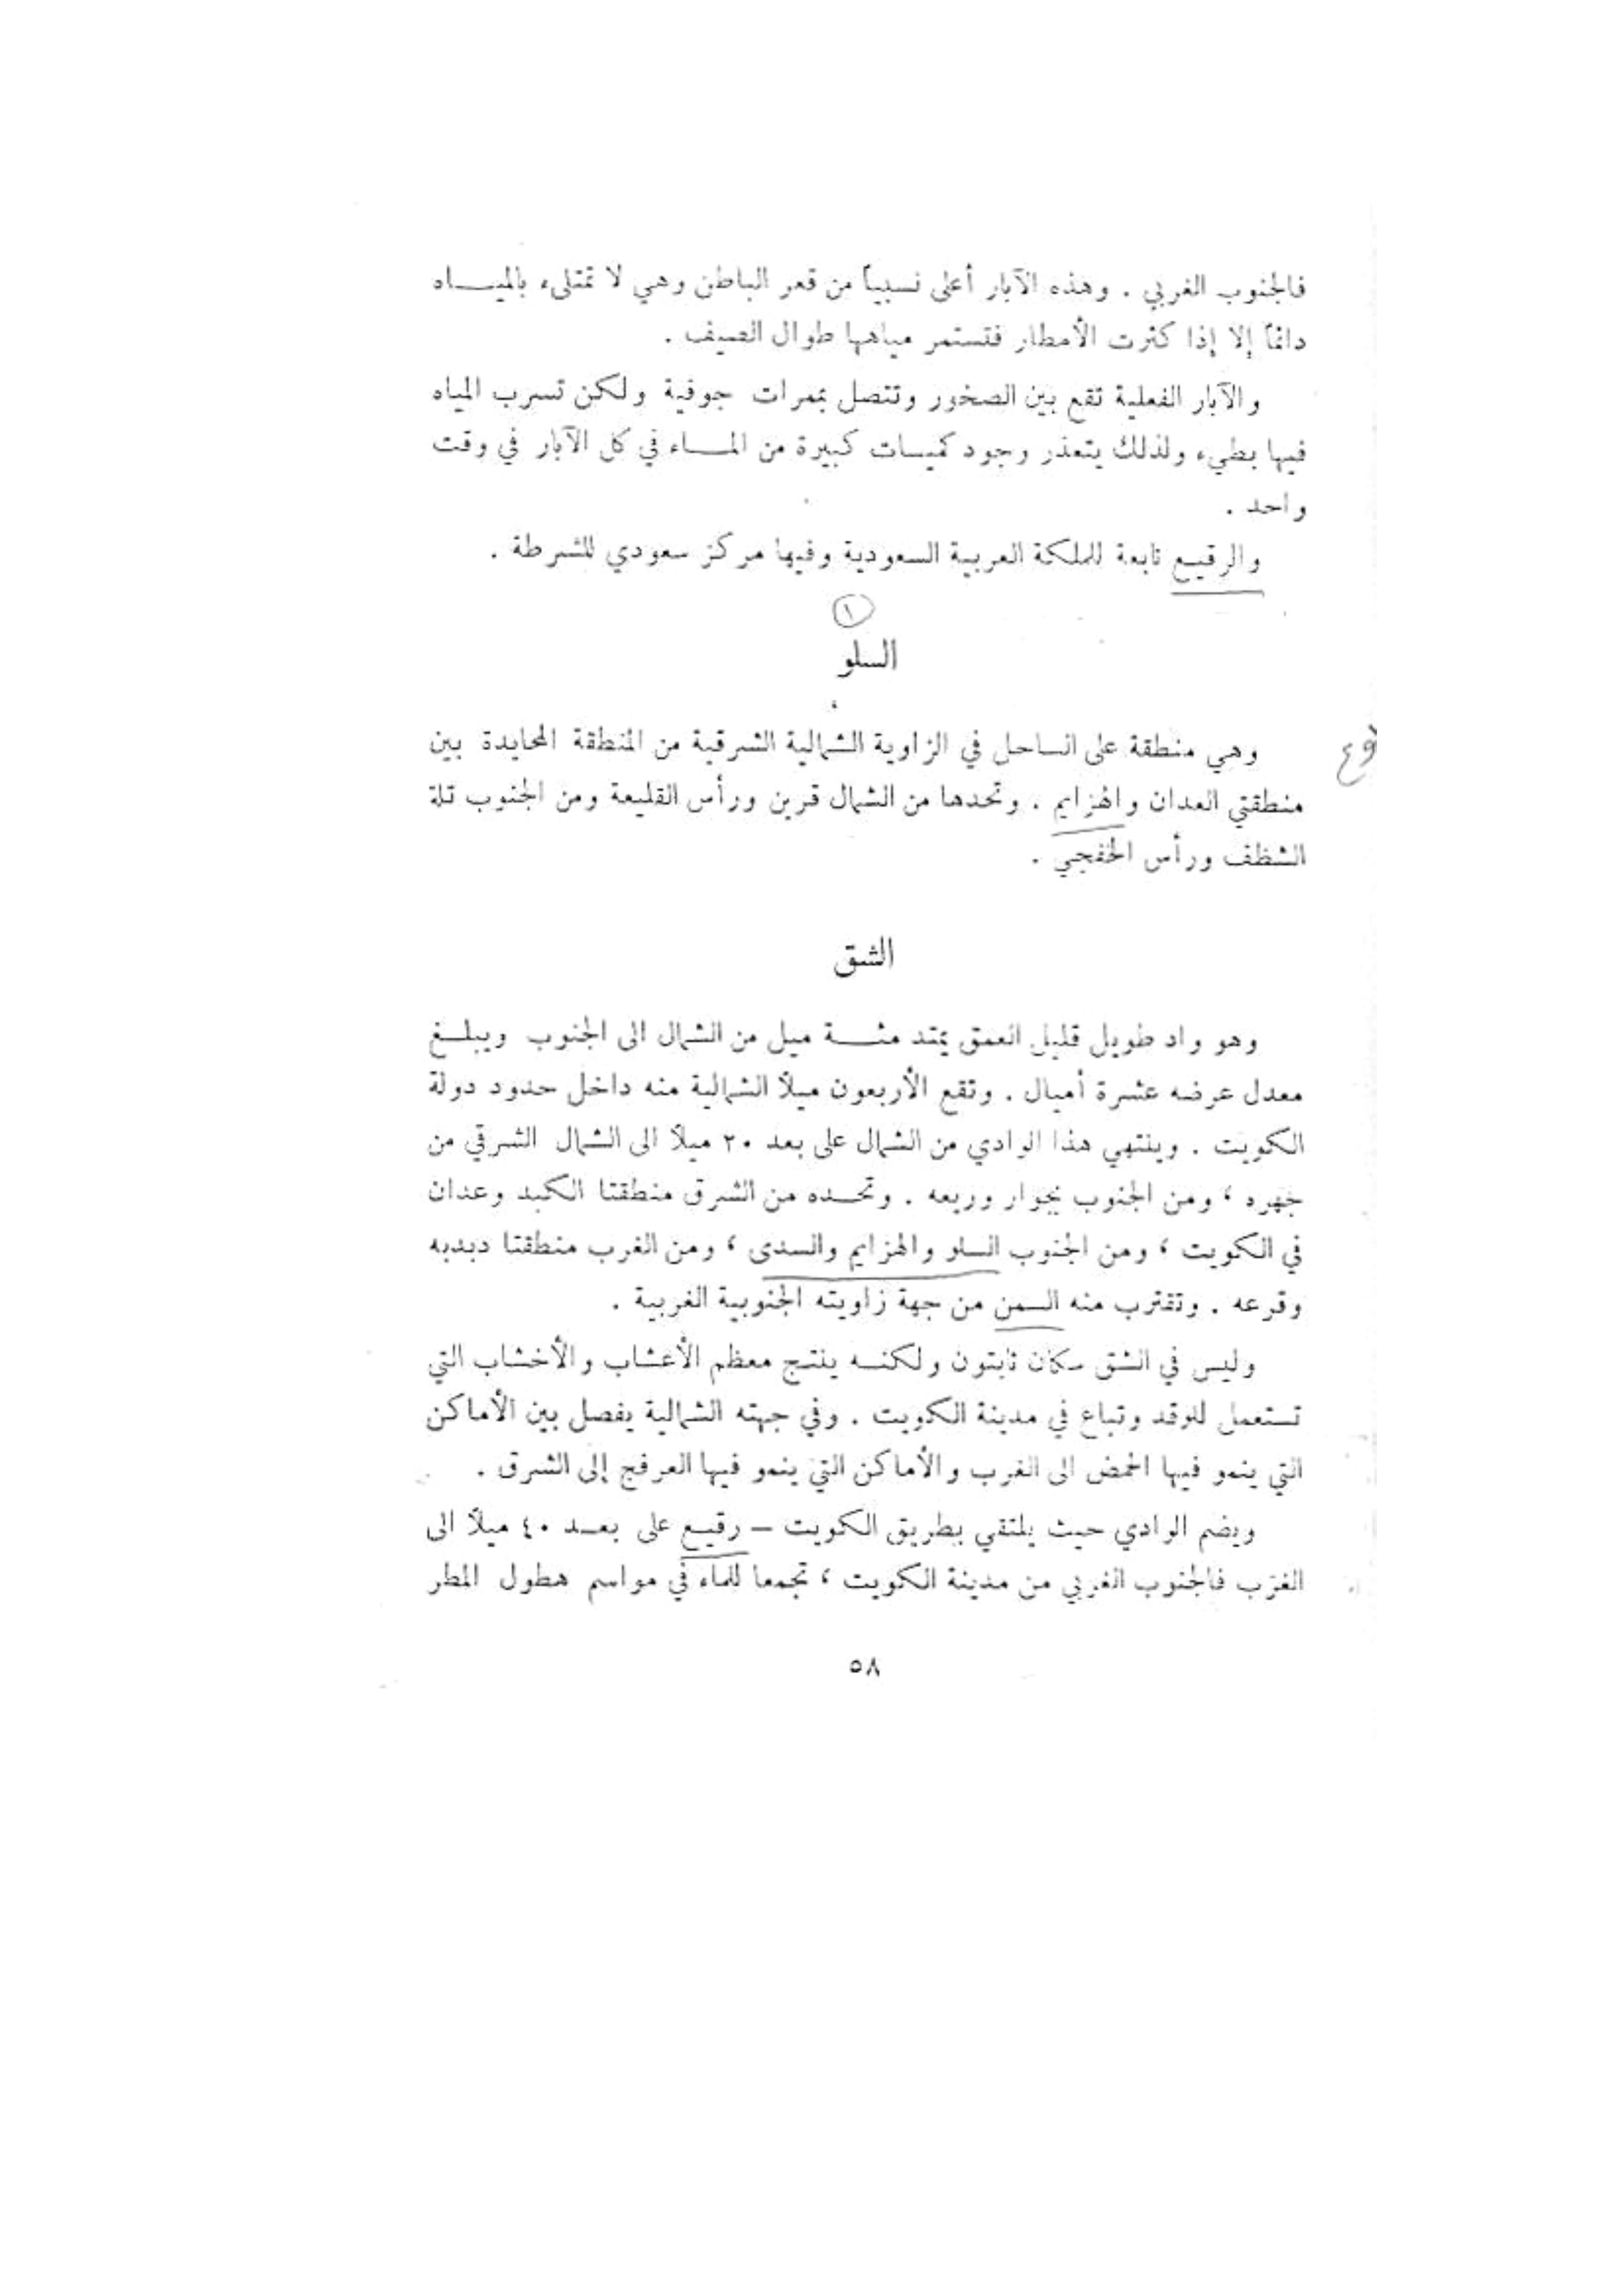 فالجنوب الغربي . وهذه الآبار أعلى نسبياً من قعر الباطن وهي لا تمتلىء بالميـــاه
دائماً إلا إذا كثرت الأمطار فتستمر مياهها طوال الصيف .
والآبار الفعلية تقع بين الصخور وتتصل بممرات جوفية ولكن تسرب المياه
فيها بطيء ولذلك يتعذر وجود كميـات كبيرة من المـــاء في كل الآبار في وقت
واحد .
والرقيـع تابعة للملكة العربية السعودية وفيها مركز سعودي للشرطة .
١
السلو
وهي منطقة على الساحل في الزاوية الشمالية الشرقية من المنطقة المحايدة بين
منطقتي العدان والهزايم . وتحدها من الشمال قرين ورأس القليعة ومن الجنوب تلة
الشظف ورأس الخفجي .
الشق
وهو واد طويل قليل العمق يمتد مئـــة ميل من الشمال الى الجنوب ويبلـــغ
معدل عرضه عشرة أميال . وتقع الأربعون ميلاً الشمالية منه داخل حدود دولة
الكويت . وينتهي هذا الوادي من الشمال على بعد ٢٠ ميلاً الى الشمال الشرقي من
جهره ، ومن الجنوب بجوار وربعه . وتحـــده من الشرق منطقتا الكبد وعدان
في الكويت ، ومن الجنوب السلو والهزايم والسدى ، ومن الغرب منطقتا دبدبه
وقرعه . وتقترب منه السمن من جهة زاويته الجنوبية الغربية .
وليس في الشق سكان ثابتون ولكنــه ينتج معظم الأعشاب والأخشاب التي
تستعمل للوقد وتباع في مدينة الكويت . وفي جهته الشمالية يفصل بين الأماكن
التي ينمو فيها الحمض الى الغرب والأماكن التي ينمو فيها العرفج إلى الشرق .
ويضم الوادي حيث يلتقي بطريق الكويت – رقيـع على بعــد ٤٠ ميلاً الى
الغرب فالجنوب الغربي من مدينة الكويت ، تجمعا للماء في مواسم هطول المطر
٥٨